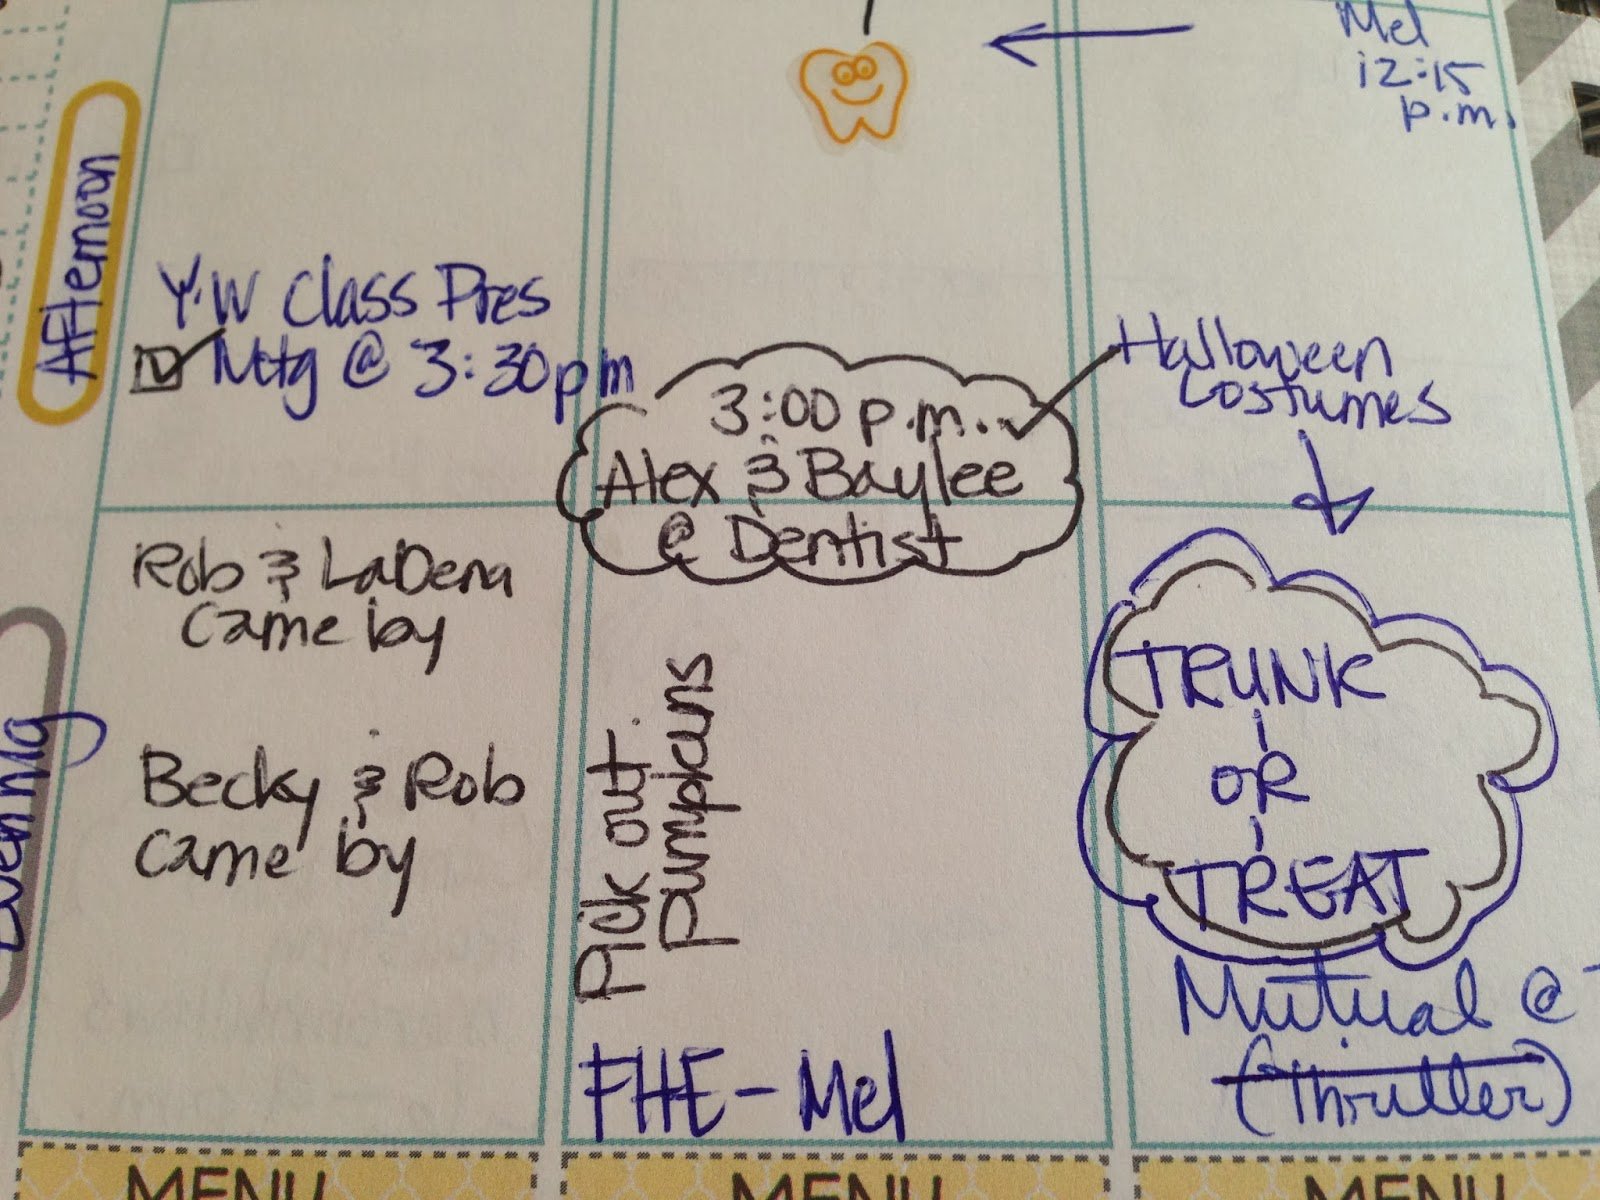 Mel
12:15
p.m.
Afternoon
Y.W Class Pres
Mtg @ 3:30pm
3:00 p.m.
Alex & Baylee
@ Dentist
Halloween
Costumes
Evening
Rob & LaDena
came by
Becky & Rob
came by
Pick out
pumpkins
FHE - Mel
TRUNK
- OR -
TREAT
Mutual @
(Thriller)
MENU
MENU
MENU